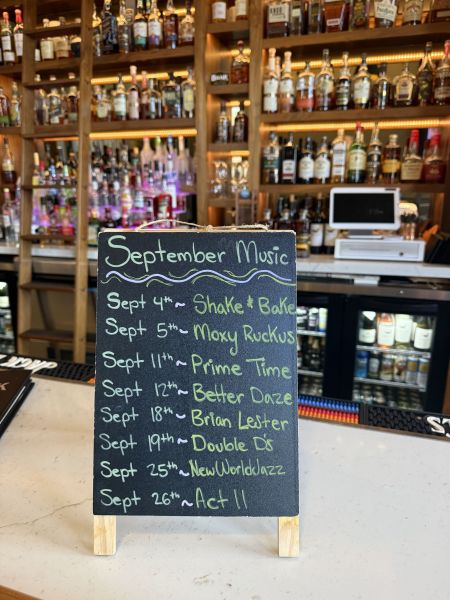 September Music
Sept 4th ~ Shake & Bake
Sept 5th ~ Moxy Ruckus
Sept 11th ~ Prime Time
Sept 12th ~ Better Daze
Sept 18th ~ Brian Lester
Sept 19th ~ Double D's
Sept 25th ~ New World Jazz
Sept 26th ~ Act II